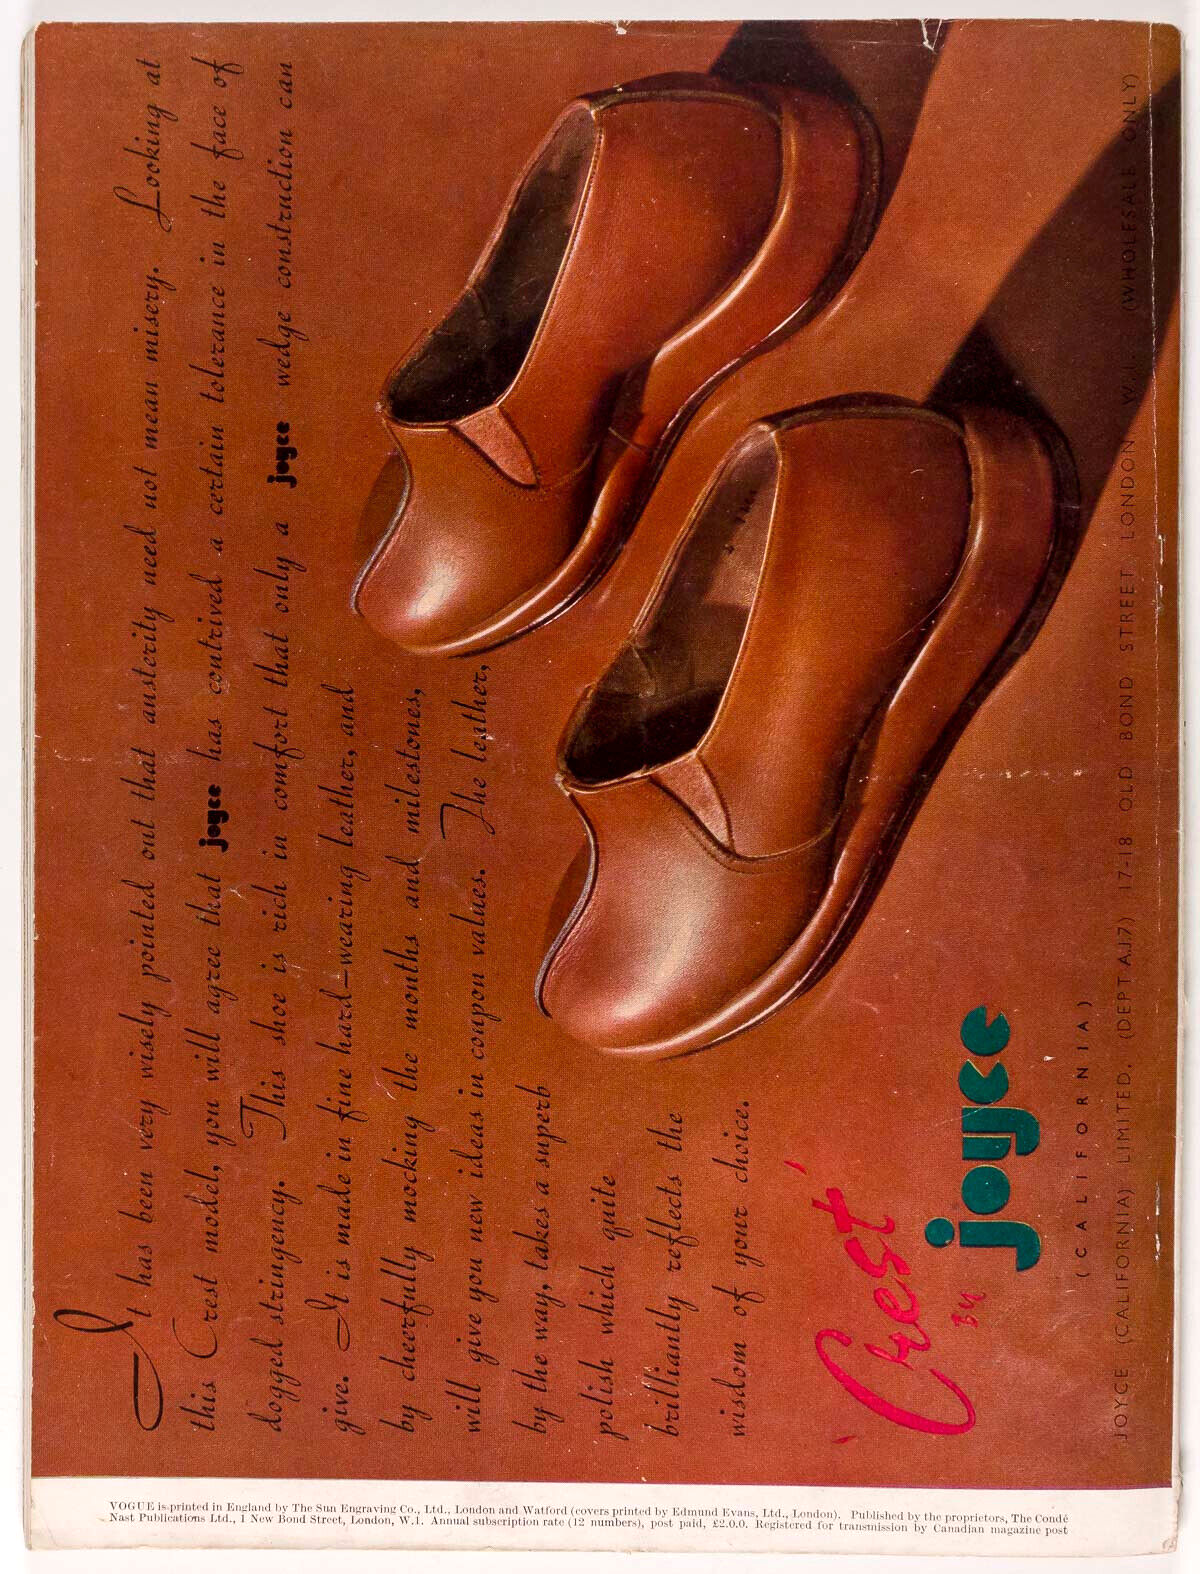 It has been very wisely pointed out that austerity need not mean misery. Looking at
this Crest model, you will agree that joyce has contrived a certain tolerance in the face of
dogged stringency. This shoe is rich in comfort that only a joyce wedge construction can
give. It is made in fine hard-wearing leather, and
by cheerfully mocking the months and milestones,
will give you new ideas in coupon values. The leather,
by the way, takes a superb
polish which quite
brilliantly reflects the
wisdom of your choice.
'Crest'
BY
joyce
(CALIFORNIA)
JOYCE (CALIFORNIA) LIMITED, (DEPT A.J.7) 17-18 OLD BOND STREET LONDON W.1. (WHOLESALE ONLY)
VOGUE is printed in England by The Sun Engraving Co., Ltd., London and Watford (covers printed by Edmund Evans, Ltd., London). Published by the proprietors, The Condé
Nast Publications Ltd., 1 New Bond Street, London, W.1. Annual subscription rate (12 numbers), post paid, £2.0.0. Registered for transmission by Canadian magazine post